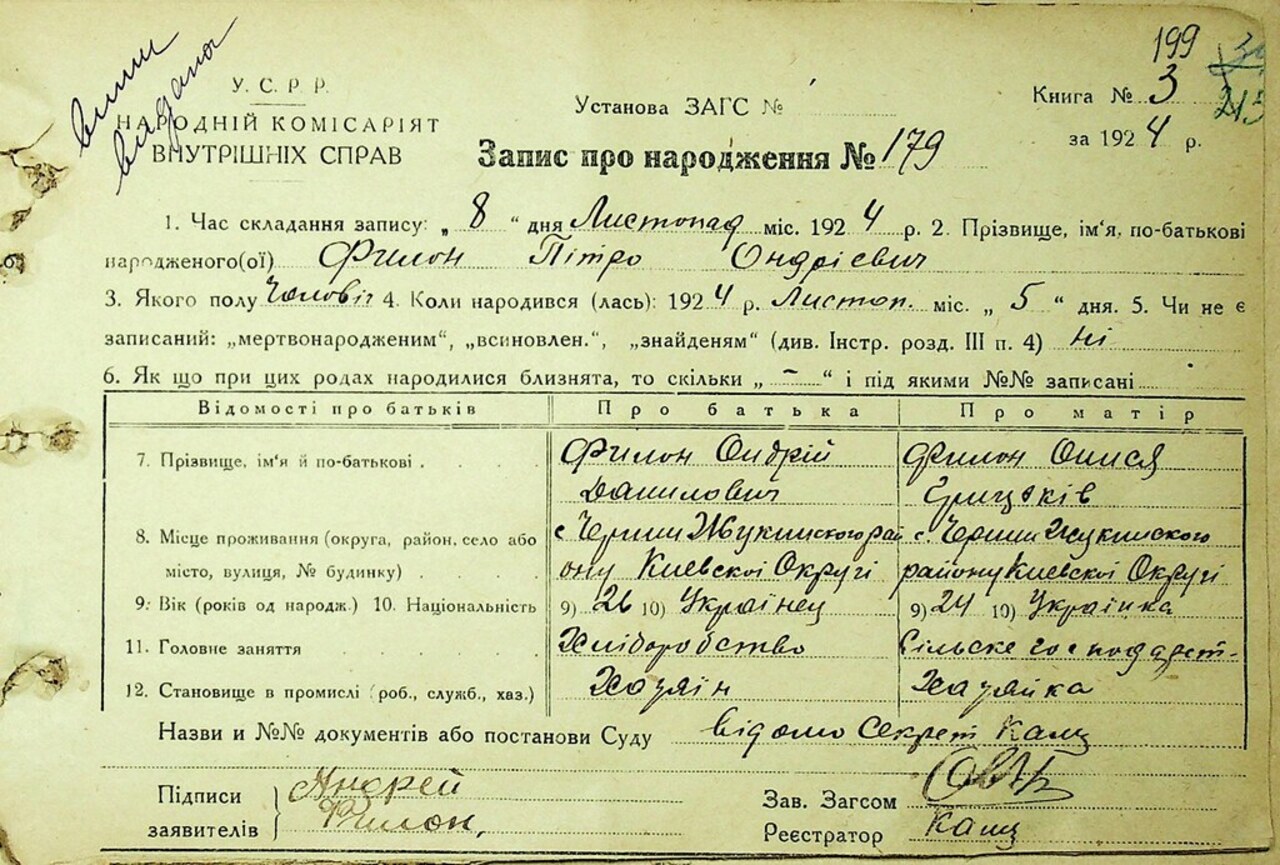 199
випис видана
У. С. Р. Р.
НАРОДНІЙ КОМІСАРІЯТ
ВНУТРІШНІХ СПРАВ
Установа ЗАГС №
Книга № 3
213
за 1924 р.
Запис про народження № 179
1. Час складання запису: „ 8 “ дня Листопад міс. 1924 р. 2. Прізвище, ім'я, по-батькові
народженого(ої) Филон Пітро Ондріевич
3. Якого полу Чоловіч 4. Коли народився (лась): 1924 р. Листоп. міс. „ 5 “ дня. 5. Чи не є
записаний: „мертвонародженим“, „всиновлен.“, „знайденям“ (див. Інстр. розд. III п. 4) ні
6. Як що при цих родах народилися близнята, то скільки „ – “ і під якими №№ записані
Відомості про батьків Про батька Про матір
7. Прізвище, ім'я й по-батькові Филон Ондрій Филон Онися
Данилович Грицьків
8. Місце проживання (округа, район, село або с. Черпин Жукинского рай с. Черпин Жукинского
місто, вулиця, № будинку) ону Киевскоі Округі району Киевскоі Округі
9. Вік (років од народж.) 10. Національність 9) 26 10) Украінец 9) 24 10) Украінка
11. Головне заняття Хліборобство Сільске господарст-
12. Становище в промислі (роб., служб., хаз.) Хазяін Хазяйка
Назви и №№ документів або постанови Суду відомо Секрет Кащ
Підписи Андрей
заявителів Филон,
Зав. Загсом
Реєстратор Кащ